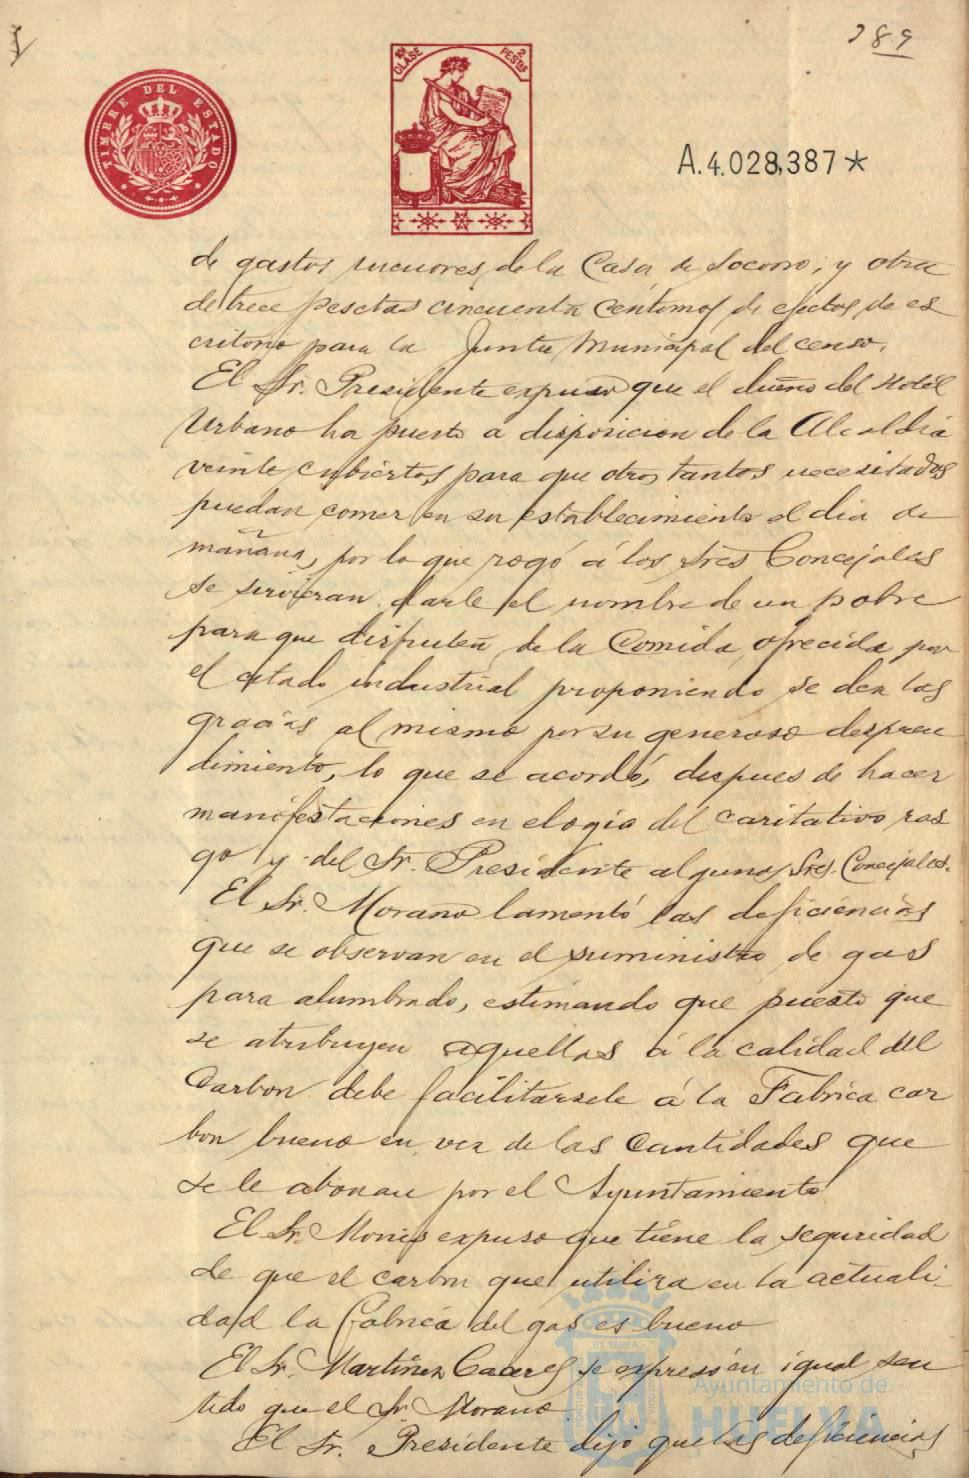 389
10ª CLASE
2 PESTAS
TIMBRE DEL ESTADO
A.4.028,387*
de gastos menores de la Casa de Socorro; y otra
de trece pesetas cincuenta centimos de efectos de es
critorio para la Junta Municipal del censo.
El Sr. Presidente expuso que el dueño del Hotel
Urbano ha puesto a disposicion de la Alcaldia
veinte cubiertos para que otros tantos necesitados
puedan comer en su establecimiento el dia de
mañana, por lo que rogó á los Sres Concejales
se sirvieran darle el nombre de un pobre
para que disfruten de la Comida ofrecida por
el citado industrial proponiendo se den las
gracias al mismo por su generoso despren
dimiento, lo que se acordó, despues de hacer
manifestaciones en elogio del caritativo ras
go y del Sr. Presidente algunos Sres. Concejales.
El Sr. Morano lamentó las deficiencias
que se observan en el suministro de gas
para alumbrado, estimando que puesto que
se atribuyen aquellas á la calidad del
Carbon debe facilitarsele á la Fabrica car
bon bueno en vez de las cantidades que
se le abonan por el Ayuntamiento
El Sr. Monis expuso que tiene la seguridad
de que el carbon que utiliza en la actuali
dad la fabrica del gas es bueno
El Sr. Martinez Caceres se expresó en igual sen
tido que el Sr. Morano
El Sr. Presidente dijo que las deficiencias
Ayuntamiento de
HUELVA